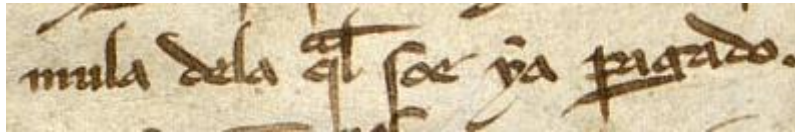 mula dela ql soe ya pagado.